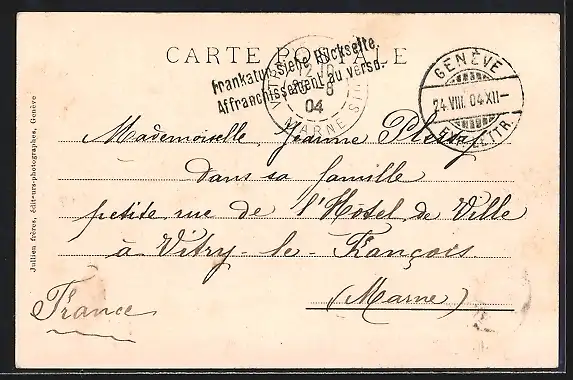 CARTE POSTALE
Frankatur siehe Rückseite.
Affranchissement au verso.
VITRY
12
25-8
04
MARNE
GENÈVE
24.VIII.04 XII-
EXP. LETTR.
Mademoiselle Jeanne
dans sa famille
petite rue de l'Hôtel de Ville
à Vitry-le-François
(Marne)
France
Jullien frères, éditeurs-photographes, Genève